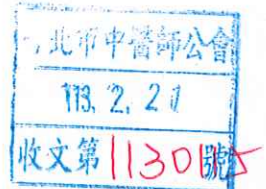 北市中醫師公會
113. 2. 21
收文第1130115號